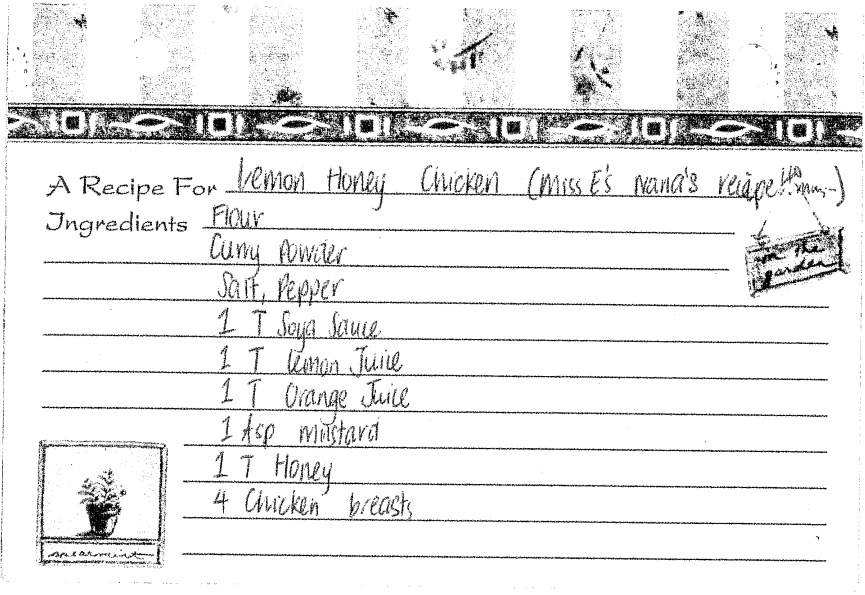 A Recipe For Lemon Honey Chicken (Miss E's Nana's recipe!!
Ingredients Flour
Curry Powder
in the
garden
Salt, Pepper
1 T Soya Sauce
1 T Lemon Juice
1 T Orange Juice
1 tsp mustard
1 T Honey
4 Chicken breasts
spearmint